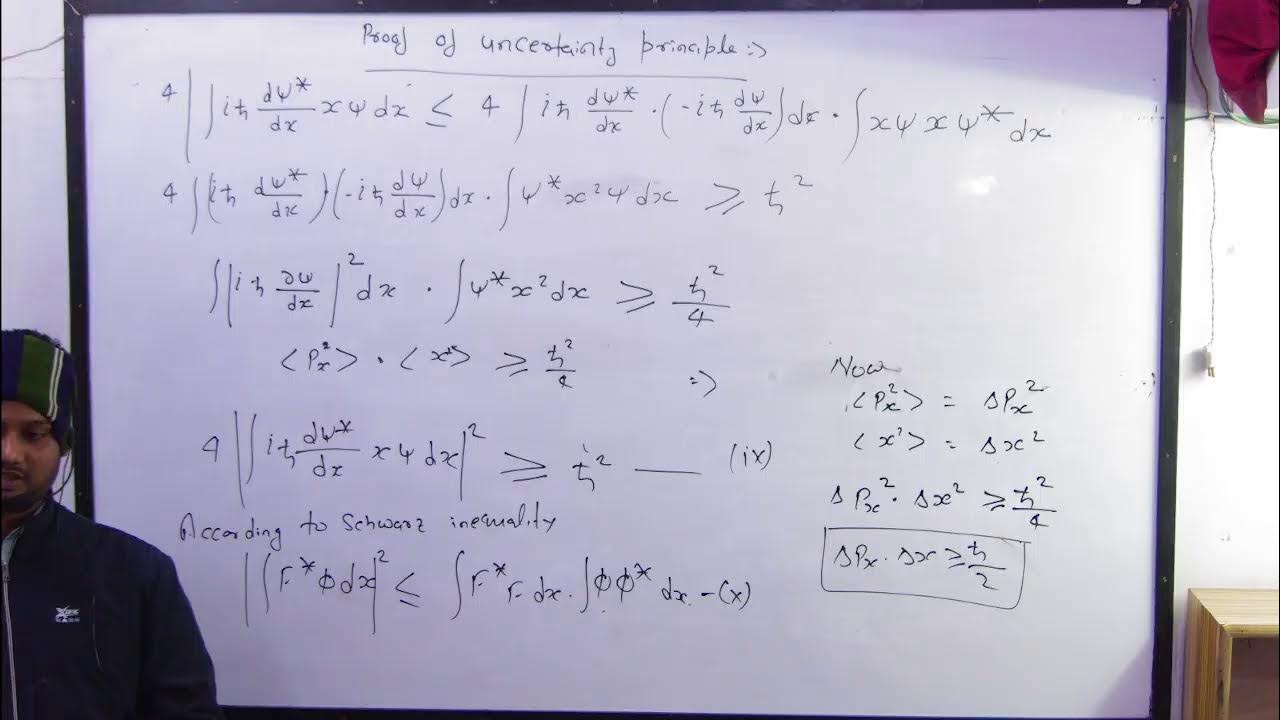 Proof of uncertainty principle :->
4 | ∫ iħ dψ*/dx x ψ dx ≤ 4 ∫ iħ dψ*/dx · (-iħ dψ/dx) dx · ∫ x ψ x ψ* dx
4 ∫ (iħ dψ*/dx) · (-iħ dψ/dx) dx · ∫ ψ* x² ψ dx ≥ ħ²
∫ | iħ ∂ψ/dx |² dx · ∫ ψ* x² dx ≥ ħ²/4
<Px²> · <x²> ≥ ħ²/4 =>
4 | ∫ iħ dψ*/dx x ψ dx |² ≥ ħ² — (ix)
According to Schwarz inequality
| ∫ F* φ dx |² ≤ ∫ F* F dx · ∫ φ φ* dx. - (x)
Now
<Px²> = ΔPx²
<x²> = Δx²
ΔPx² · Δx² ≥ ħ²/4
ΔPx · Δx ≥ ħ/2